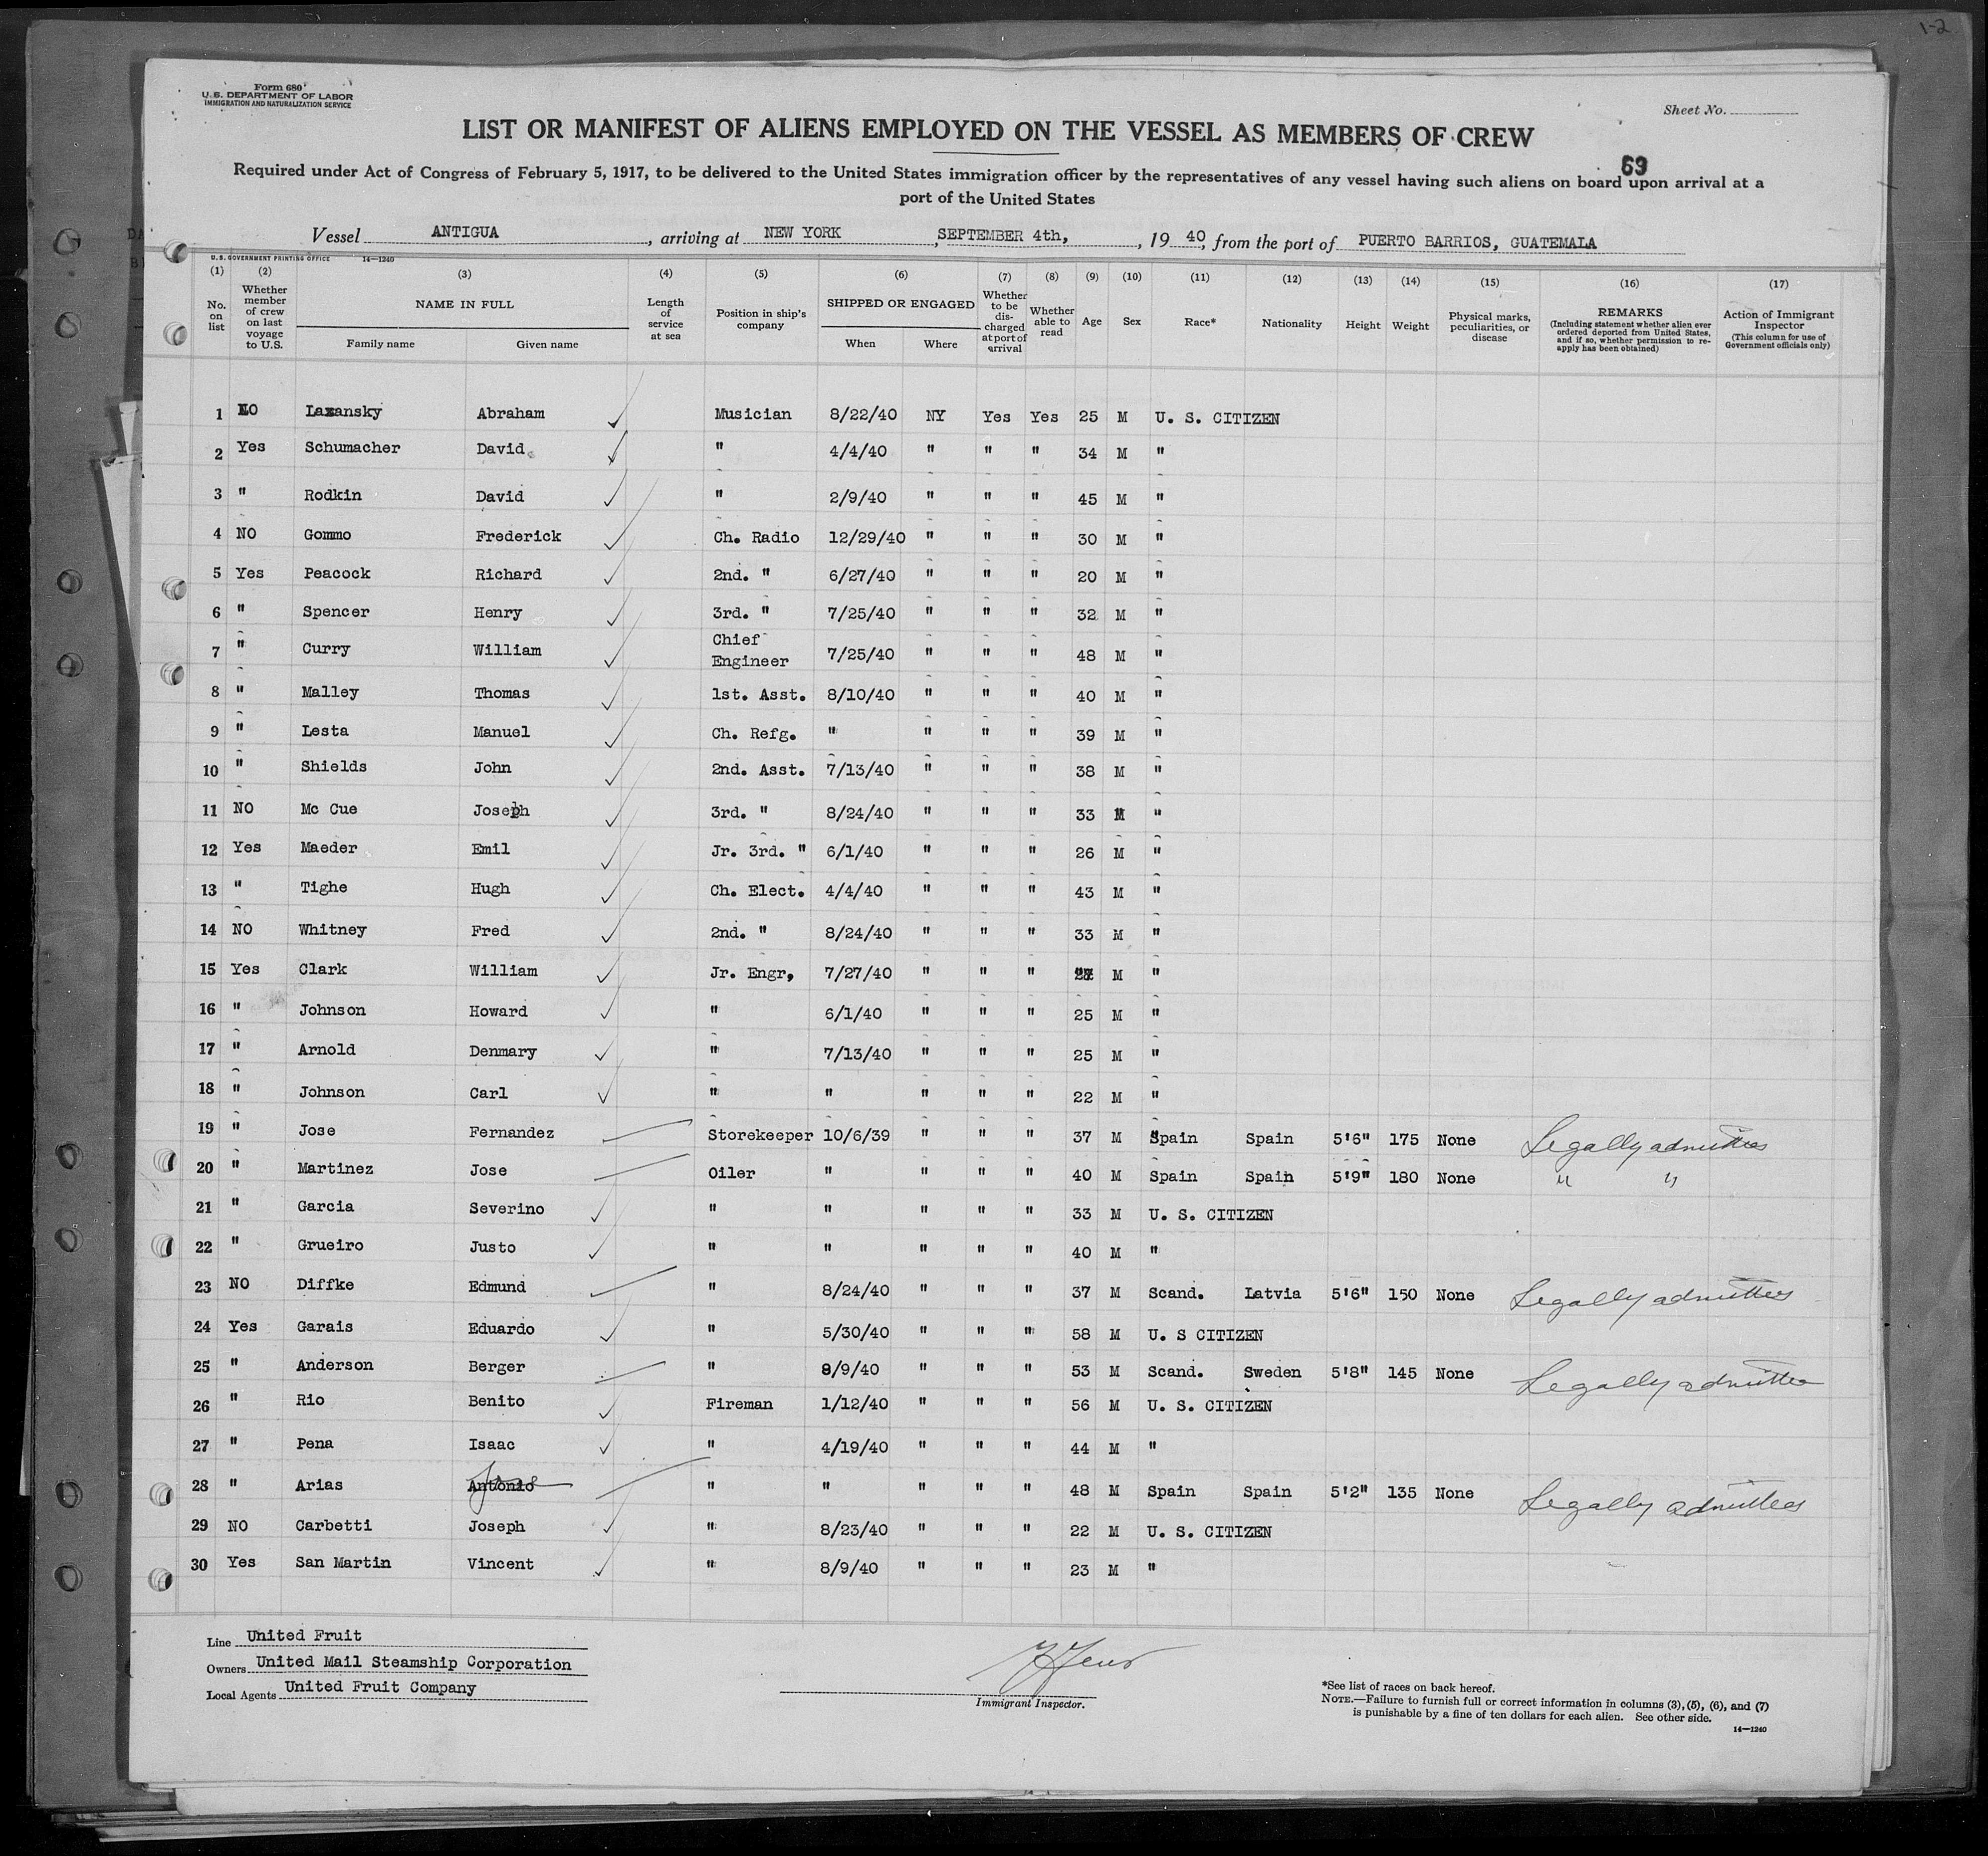 1-2
Form 680
U. S. DEPARTMENT OF LABOR
IMMIGRATION AND NATURALIZATION SERVICE
Sheet No.
LIST OR MANIFEST OF ALIENS EMPLOYED ON THE VESSEL AS MEMBERS OF CREW
69
Required under Act of Congress of February 5, 1917, to be delivered to the United States immigration officer by the representatives of any vessel having such aliens on board upon arrival at a
port of the United States
Vessel ANTIGUA, arriving at NEW YORK, SEPTEMBER 4th, , 19 40, from the port of PUERTO BARRIOS, GUATEMALA
U. S. GOVERNMENT PRINTING OFFICE 14—1240
(1) (2) (3) (4) (5) (6) (7) (8) (9) (10) (11) (12) (13) (14) (15) (16) (17)
No. on list
Whether member of crew on last voyage to U.S.
NAME IN FULL
Family name Given name
Length of service at sea
Position in ship's company
SHIPPED OR ENGAGED
When Where
Whether to be discharged at port of arrival
Whether able to read
Age
Sex
Race*
Nationality
Height
Weight
Physical marks, peculiarities, or disease
REMARKS
(Including statement whether alien ever ordered deported from United States, and if so, whether permission to re-apply has been obtained)
Action of Immigrant Inspector
(This column for use of Government officials only)
1 NO Lazansky Abraham Musician 8/22/40 NY Yes Yes 25 M U. S. CITIZEN
2 Yes Schumacher David " 4/4/40 " " " 34 M "
3 " Rodkin David " 2/9/40 " " " 45 M "
4 NO Gommo Frederick Ch. Radio 12/29/40 " " " 30 M "
5 Yes Peacock Richard 2nd. " 6/27/40 " " " 20 M "
6 " Spencer Henry 3rd. " 7/25/40 " " " 32 M "
7 " Curry William Chief Engineer 7/25/40 " " " 48 M "
8 " Malley Thomas 1st. Asst. 8/10/40 " " " 40 M "
9 " Lesta Manuel Ch. Refg. " " " " 39 M "
10 " Shields John 2nd. Asst. 7/13/40 " " " 38 M "
11 NO Mc Cue Joseph 3rd. " 8/24/40 " " " 33 M "
12 Yes Maeder Emil Jr. 3rd. " 6/1/40 " " " 26 M "
13 " Tighe Hugh Ch. Elect. 4/4/40 " " " 43 M "
14 NO Whitney Fred 2nd. " 8/24/40 " " " 33 M "
15 Yes Clark William Jr. Engr, 7/27/40 " " " M "
16 " Johnson Howard " 6/1/40 " " " 25 M "
17 " Arnold Denmary " 7/13/40 " " " 25 M "
18 " Johnson Carl " " " " " 22 M "
19 " Jose Fernandez Storekeeper 10/6/39 " " " 37 M Spain Spain 5'6" 175 None Legally admitted
20 " Martinez Jose Oiler " " " " 40 M Spain Spain 5'9" 180 None " "
21 " Garcia Severino " " " " " 33 M U. S. CITIZEN
22 " Grueiro Justo " " " " " 40 M "
23 NO Diffke Edmund " 8/24/40 " " " 37 M Scand. Latvia 5'6" 150 None Legally admitted
24 Yes Garais Eduardo " 5/30/40 " " " 58 M U. S CITIZEN
25 " Anderson Berger " 8/9/40 " " " 53 M Scand. Sweden 5'8" 145 None Legally admitted
26 " Rio Benito Fireman 1/12/40 " " " 56 M U. S. CITIZEN
27 " Pena Isaac " 4/19/40 " " " 44 M "
28 " Arias Antonio Jose " " " " " 48 M Spain Spain 5'2" 135 None Legally admitted
29 NO Carbetti Joseph " 8/23/40 " " " 22 M U. S. CITIZEN
30 Yes San Martin Vincent " 8/9/40 " " " 23 M "
Line United Fruit
Owners United Mail Steamship Corporation
Local Agents United Fruit Company
Immigrant Inspector.
*See list of races on back hereof.
NOTE.—Failure to furnish full or correct information in columns (3), (5), (6), and (7)
is punishable by a fine of ten dollars for each alien. See other side.
14—1240